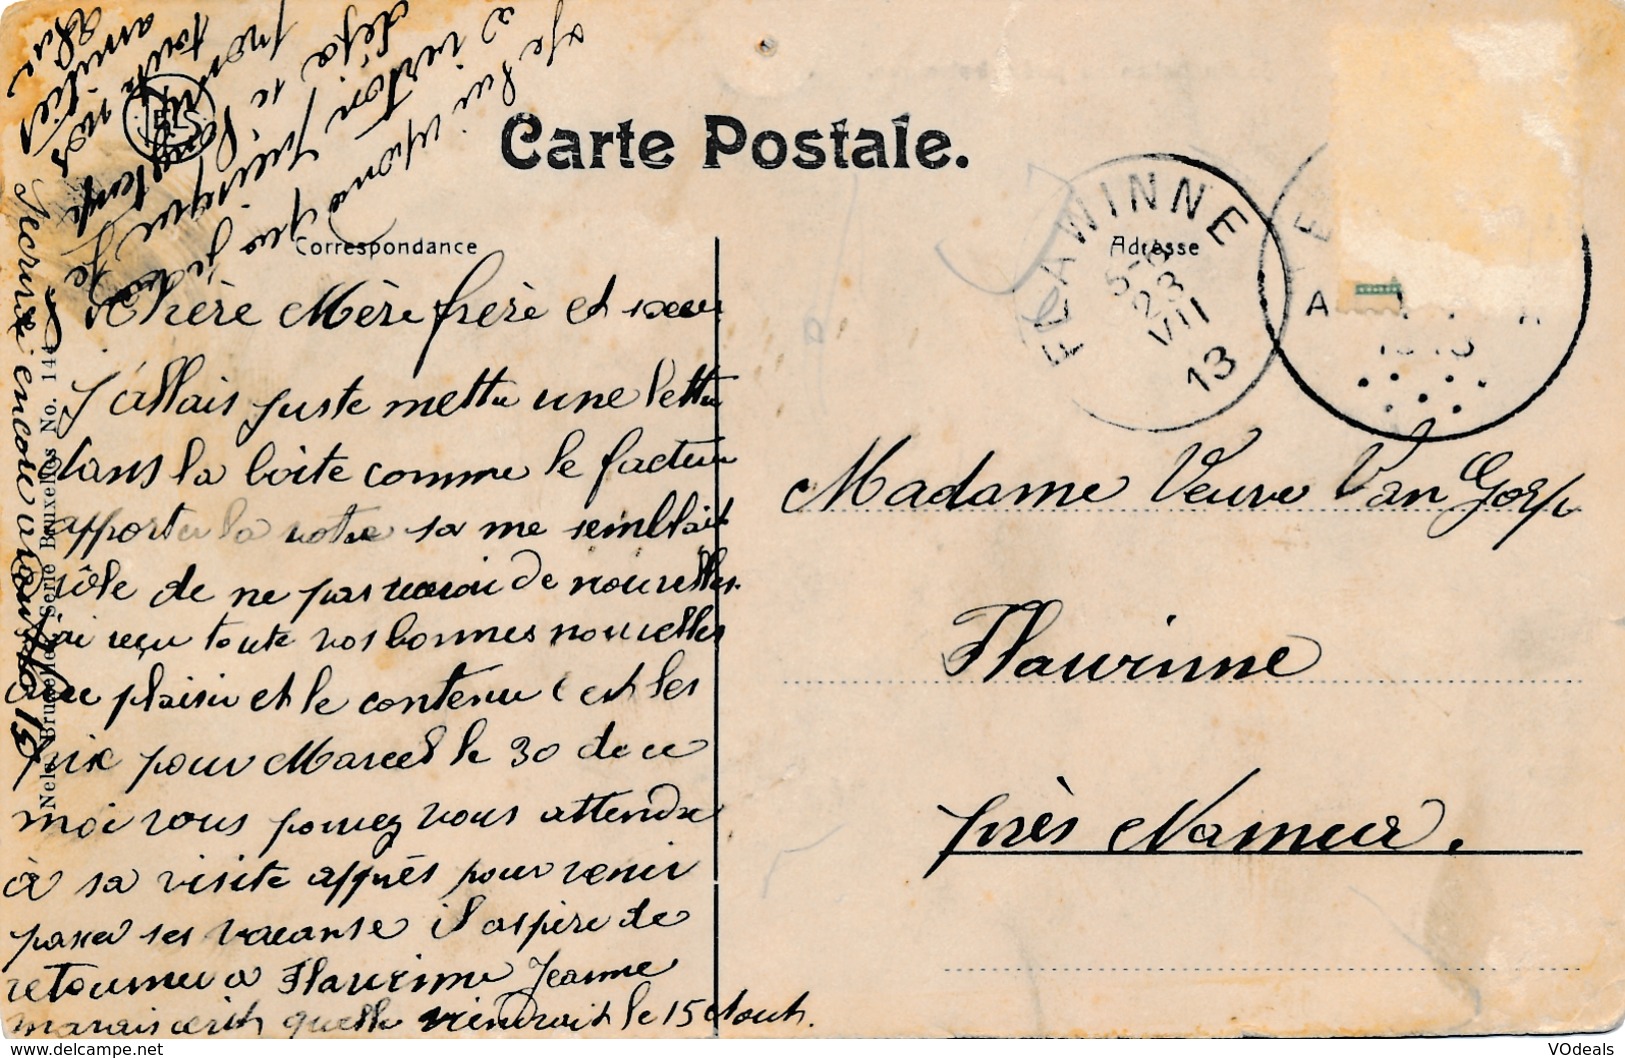 Carte Postale.
Correspondance
Adresse
FLAWINNE
23
VII
13
ELS
Chère Mère frère et sœur
J'allais juste mettre une lettre
dans la boite comme le facteur
apporter la votre sa me semblait
rôle de ne pas recevoir de nouvelles.
j'ai reçu toute vos bonnes nouvelles
avec plaisir et le contenu c est les
prix pour Marcel le 30 de ce
moi vous pouvez vous attendre
à sa visite apprès pour venir
passer ses vacanse il aspire de
retourner a Flawinne Jeanne
manais écrit quelle viendrait le 15 Aout.
Je lui
que
a virton puisque je
déja
non plus longtemp
toute nos
amitiés
Jecrirai encore avant le 15
Nels, Bruxelles, Serie Bruxelles No. 141
Madame Veuve Van Gorp
Flawinne
près Namur.
VOdeals
https://www.delcampe.net